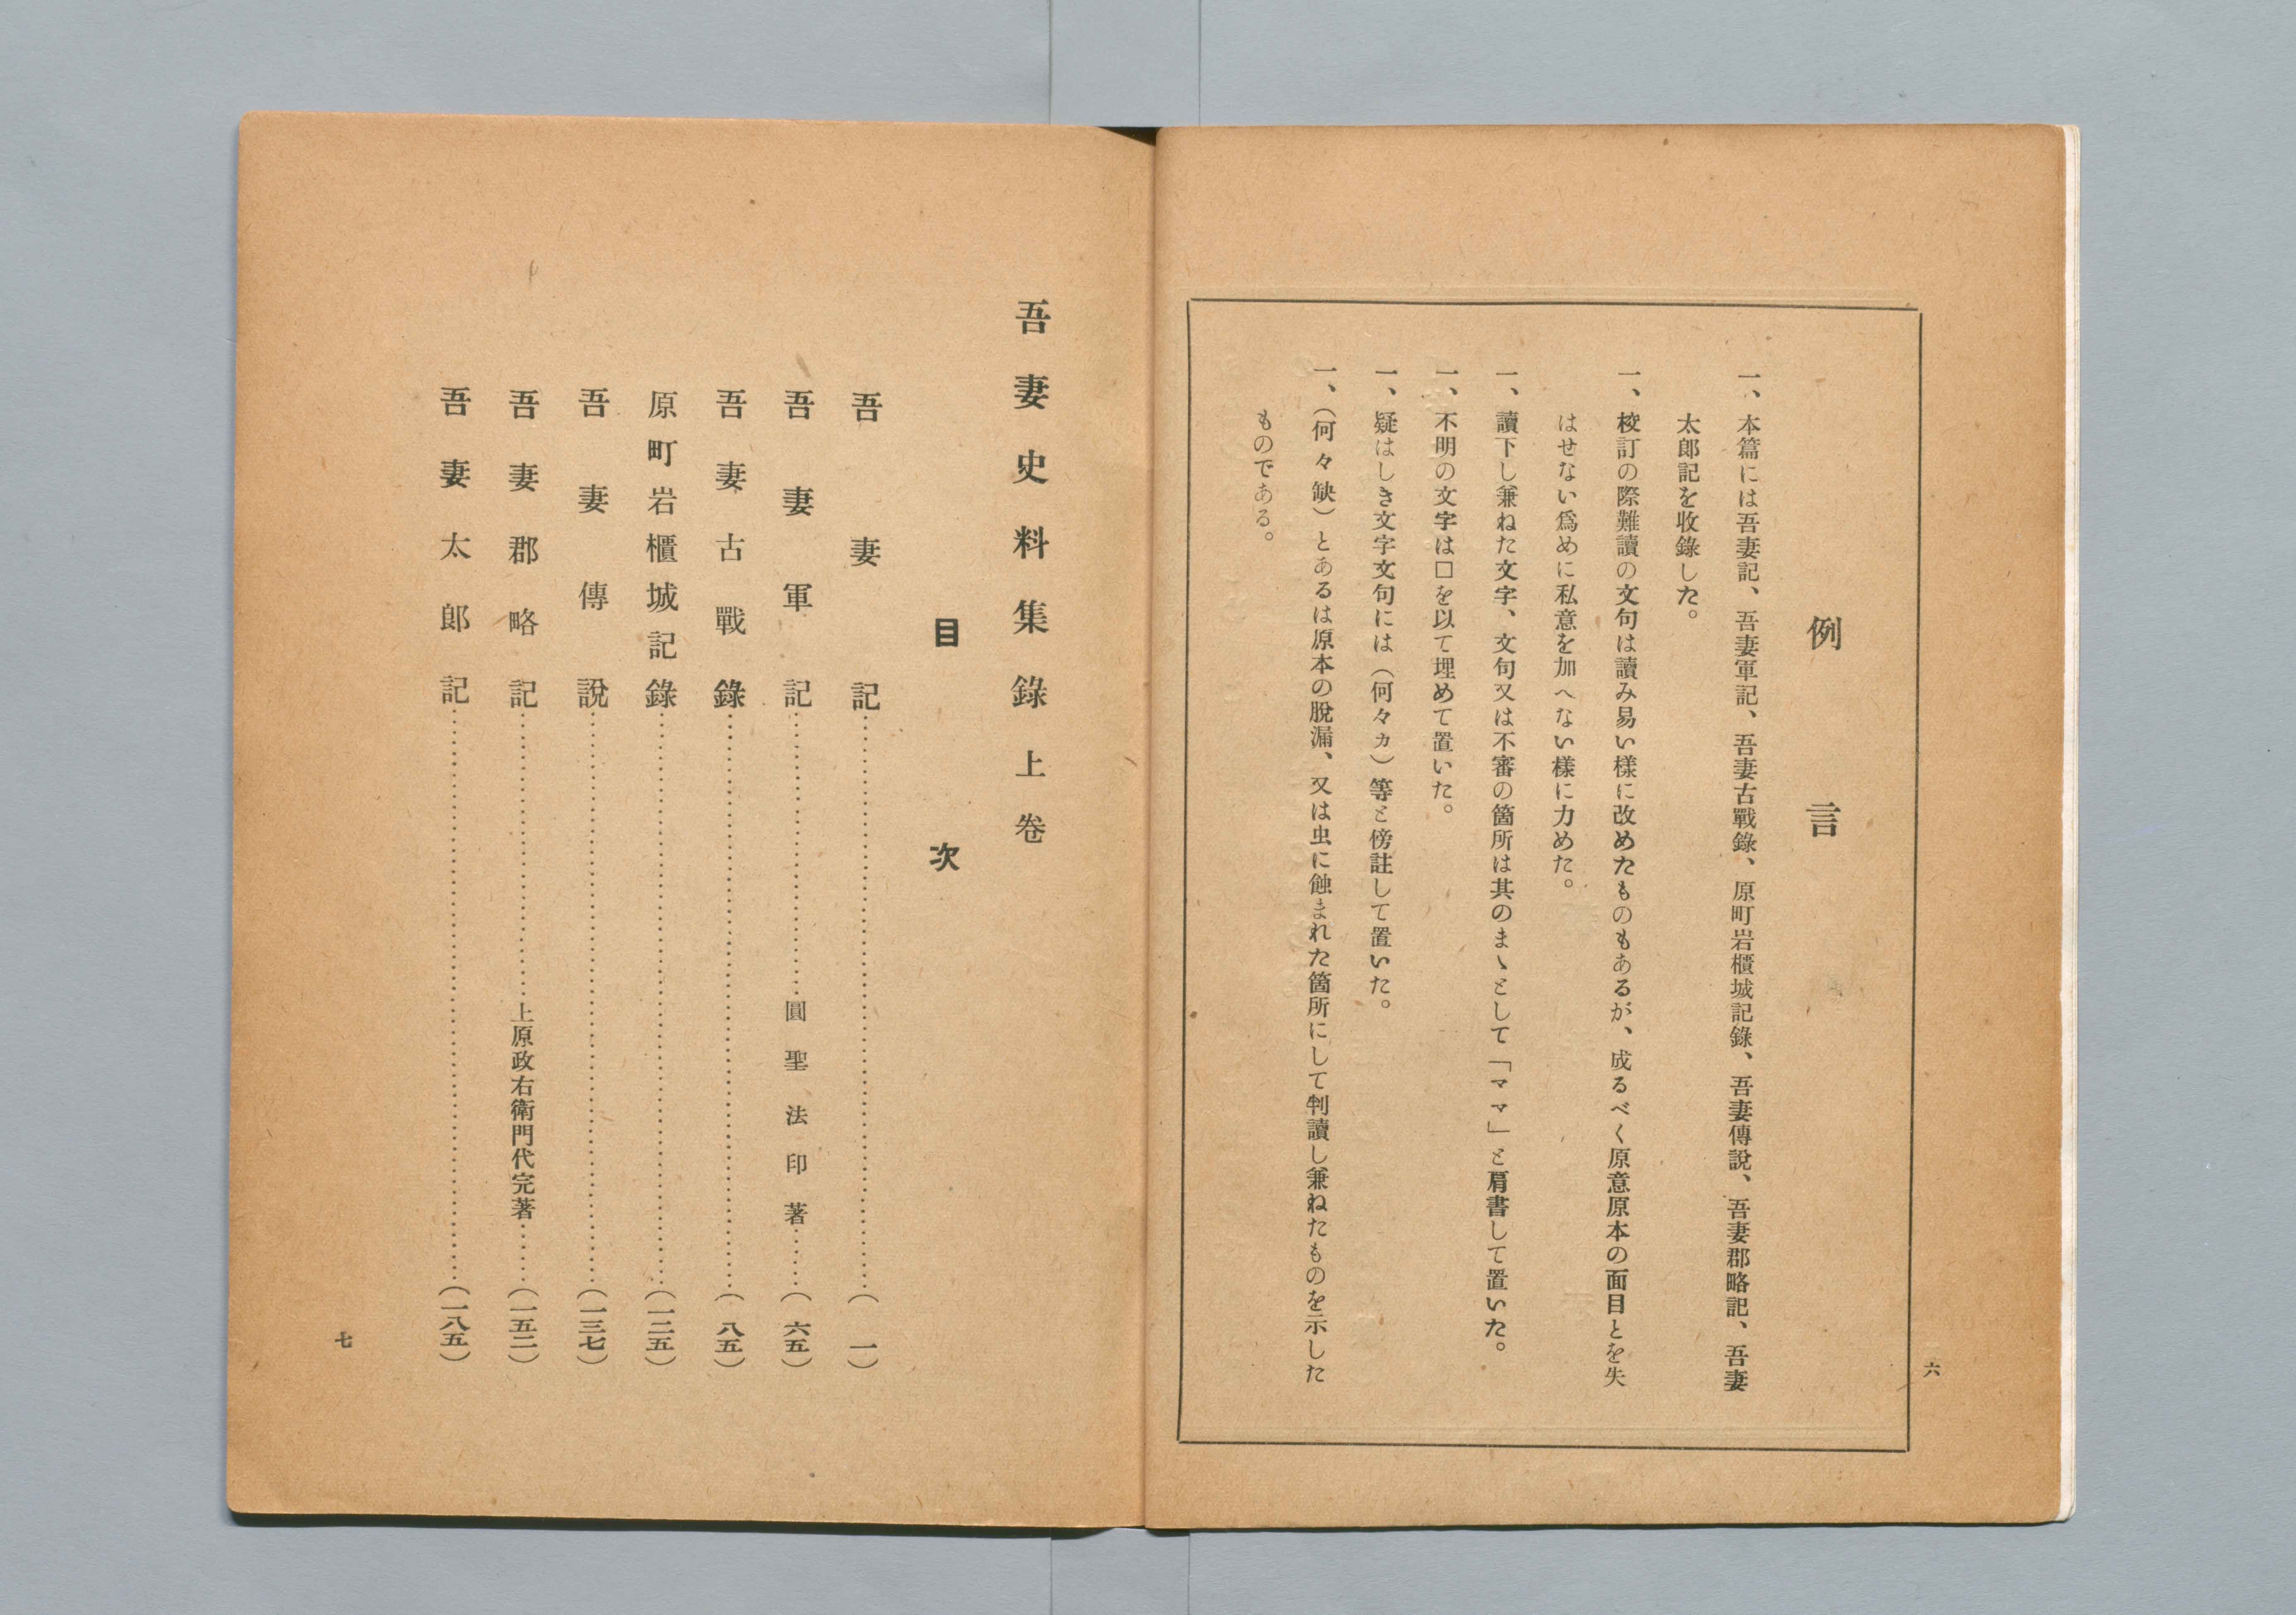 例言
一、本篇には吾妻記、吾妻軍記、吾妻古戰錄、原町岩櫃城記錄、吾妻傳說、吾妻郡略記、吾妻
太郞記を收錄した。
一、校訂の際難讀の文句は讀み易い樣に改めたものもあるが、成るべく原意原本の面目とを失
はせない爲めに私意を加へない樣に力めた。
一、讀下し兼ねた文字、文句又は不審の箇所は其のまゝとして「ママ」と肩書して置いた。
一、不明の文字は□を以て埋めて置いた。
一、疑はしき文字文句には（何々カ）等と傍註して置いた。
一、（何々缺）とあるは原本の脫漏、又は虫に蝕まれた箇所にして判讀し兼ねたものを示した
ものである。
六
吾妻史料集錄上卷
目次
吾妻記……………………（一）
吾妻軍記……………………圓聖法印著……（六五）
吾妻古戰錄……………………（八五）
原町岩櫃城記錄……………………（一二五）
吾妻傳說……………………（一三七）
吾妻郡略記……………………上原政右衛門代完著……（一五二）
吾妻太郞記……………………（一八五）
七